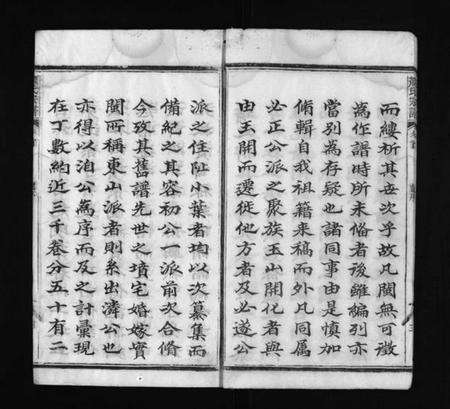 而縷析其世次乎故凡闕無可徵
為作譜時所未脩者後雖編列亦
當別為存疑也諸同事由是慎加
脩輯自我祖籍来稿而外凡同屬
必正公派之聚族玉山開化者與
由玉開而遷徙他方者及必遂公
派之住阯小葉者均以次纂集而
備紀之其容初公一派前次合脩
今攷其舊譜先世之墳宅婚嫁實
闽所稱東山派者則系出濟公也
亦得以洎公為序而及之計彙現
在丁數約近三千卷分五十有二